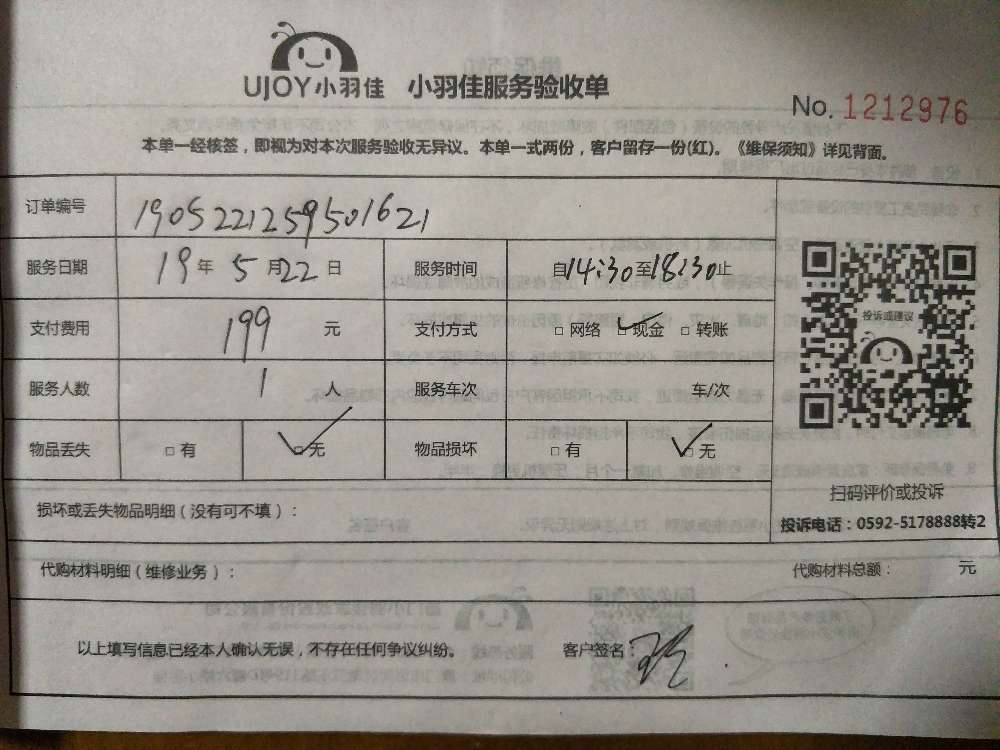 UJOY小羽佳 小羽佳服务验收单
No. 1212976
本单一经核签，即视为对本次服务验收无异议。本单一式两份，客户留存一份(红)。《维保须知》详见背面。
订单编号 1905221259501621
服务日期 19年5月22日 服务时间 自14:30至18:30止
投诉或建议
支付费用 199元 支付方式 □网络 ☑现金 □转账
服务人数 1人 服务车次 车/次
物品丢失 □有 ☑无 物品损坏 □有 ☑无
扫码评价或投诉
损坏或丢失物品明细（没有可不填）：
投诉电话：0592-5178888转2
代购材料明细（维修业务）： 代购材料总额： 元
以上填写信息已经本人确认无误，不存在任何争议纠纷。 客户签名：